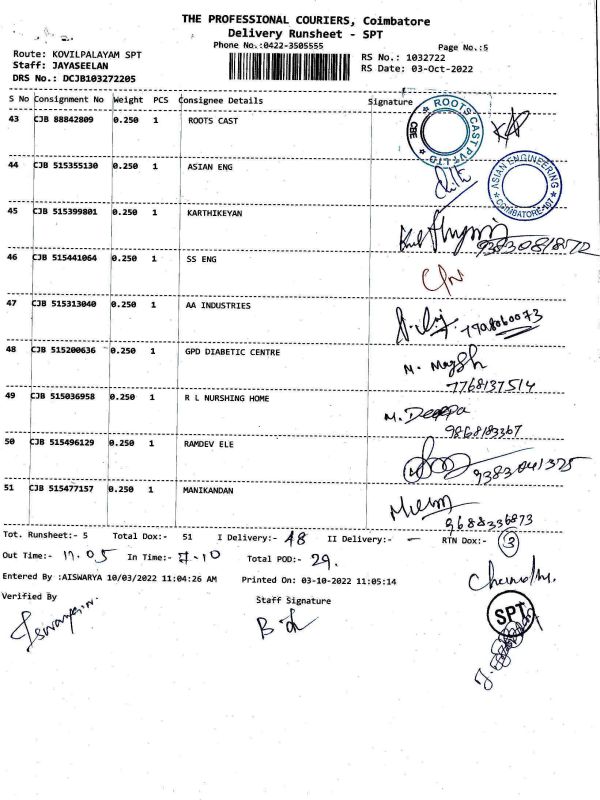 THE PROFESSIONAL COURIERS, Coimbatore
Delivery Runsheet - SPT
Phone No.:0422-3505555
Page No.:5
Route: KOVILPALAYAM SPT
RS No.: 1032722
Staff: JAYASEELAN
RS Date: 03-Oct-2022
DRS No.: DCJB103272205
S No Consignment No Weight PCS Consignee Details Signature
43 CJB 88842809 0.250 1 ROOTS CAST
ROOTS CAST PVT LTD CBE
44 CJB 515355130 0.250 1 ASIAN ENG
ASIAN ENGINEERING COIMBATORE-107
45 CJB 515399801 0.250 1 KARTHIKEYAN
46 CJB 515441064 0.250 1 SS ENG
47 CJB 515313040 0.250 1 AA INDUSTRIES
48 CJB 515200636 0.250 1 GPD DIABETIC CENTRE
7768137514
49 CJB 515036958 0.250 1 R L NURSHING HOME
M. Deepa
9868183367
50 CJB 515496129 0.250 1 RAMDEV ELE
9383041375
51 CJB 515477157 0.250 1 MANIKANDAN
9688336873
Tot. Runsheet:- 5 Total Dox:- 51 I Delivery:- 48 II Delivery:- - RTN Dox:- 3
Out Time:- 11.05 In Time:- 7.10 Total POD:- 29.
Entered By :AISWARYA 10/03/2022 11:04:26 AM Printed On: 03-10-2022 11:05:14
Verified By Staff Signature
SPT